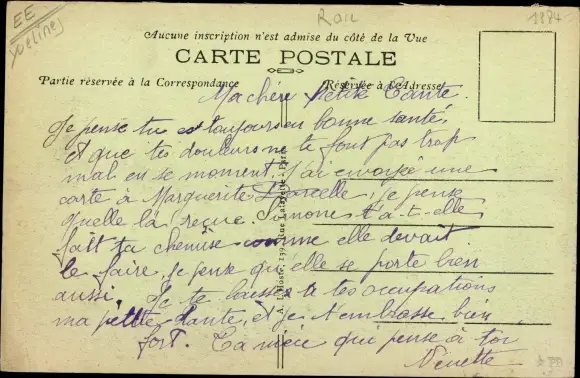 EE
Yvelines
Rare
1884
Aucune inscription n'est admise du côté de la Vue
CARTE POSTALE
Partie réservée à la Correspondance
Réservée à l'Adresse
Ma chère Petite Tante.
Je pense tu es toujours en bonne santé,
et que tes douleurs ne te font pas trop
mal en se moment. J'ai envoyée une
carte à Marguerite Darcelle, je pense
quelle la reçue. Simone t'a-t-elle
fait ta chemise comme elle devait
le faire, je pense qu'elle se porte bien
aussi. Je te laisse à tes occupations
ma petite tante, et je t'embrasse bien
fort. Ta nièce qui pense à toi
Nénette
A. L'Hoste, 139, Rue Lafayette - Paris